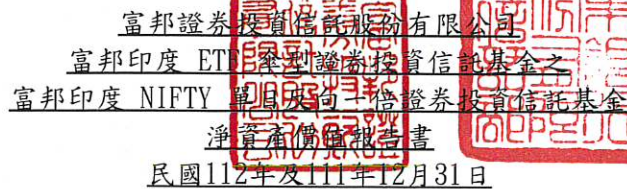 富邦證券投資信託股份有限公司
富邦印度 ETF 傘型證券投資信託基金之
富邦印度 NIFTY 單日反向一倍證券投資信託基金
淨資產價值報告書
民國112年及111年12月31日